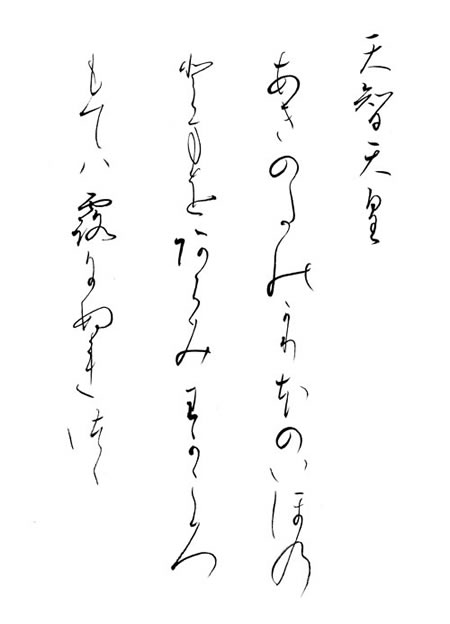 天智天皇
あきのたのかりほのいほ乃
とまをあらみわかころ
もてハ露にぬれつゝ